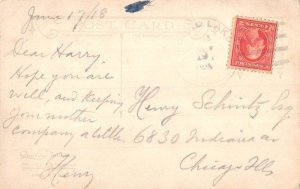 June 17/18
POST CARD
Dear Harry.
Hope you are
well, and keeping
your mother
company a little.
Henry
Henry Schintz Esq
6830 Indiana av
Chicago Ills